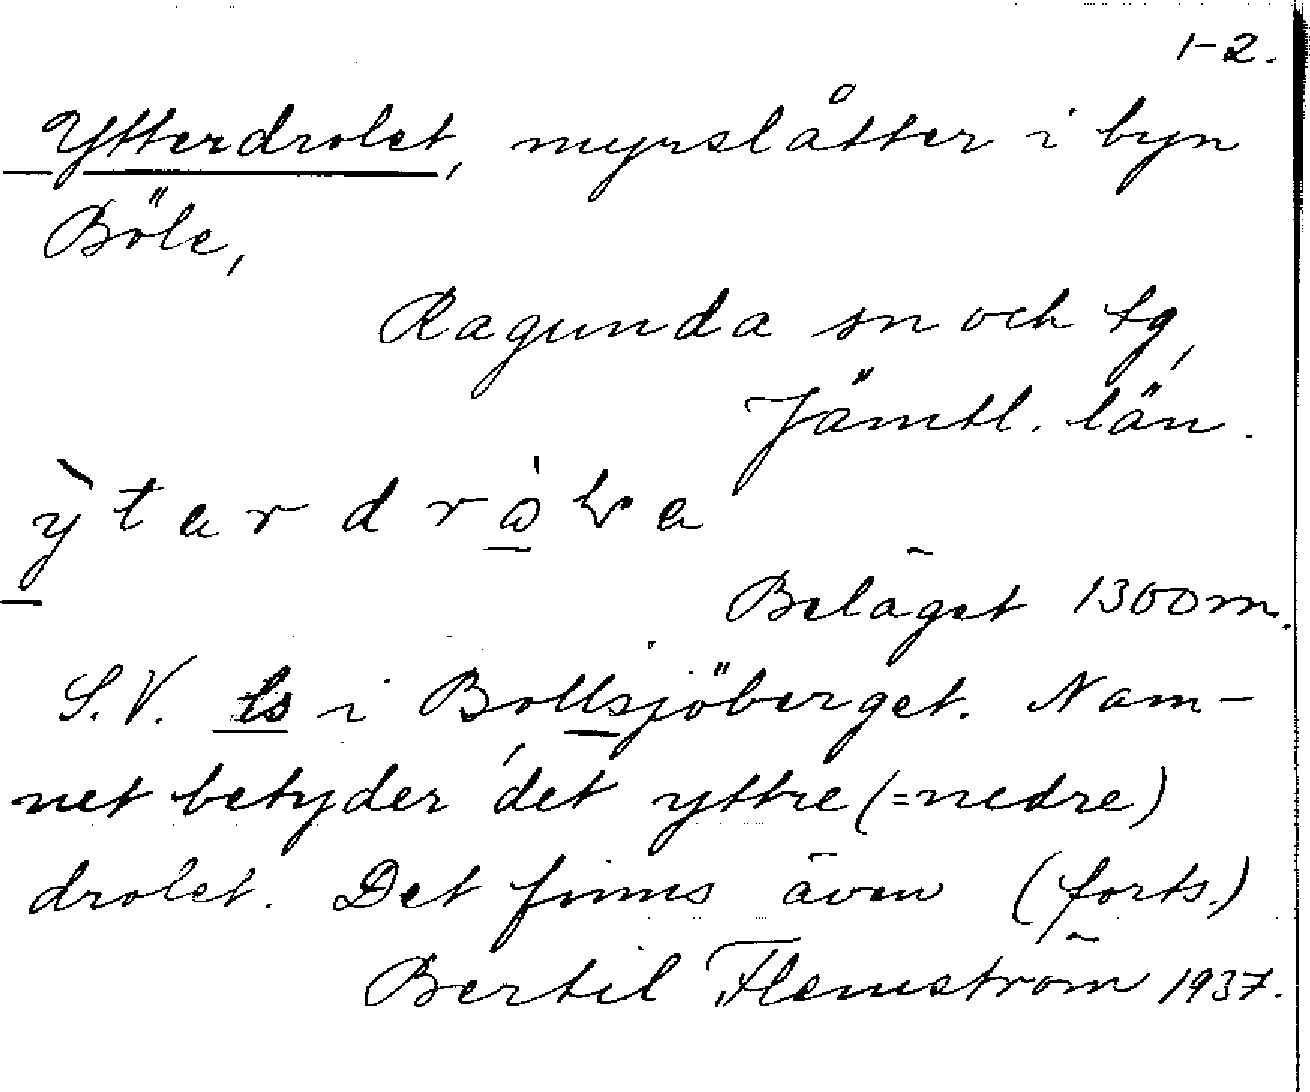 1-2.
Ytterdrolet, myrslåtter i byn
Böle,
Ragunda sn och tg,
Jämtl. län.
Beläget 1300 m.
S.V. ls i Bollsjöberget. Nam-
net betyder 'det yttre (=nedre)
drolet. Det finns även (forts.)
Bertil Flemström 1937.